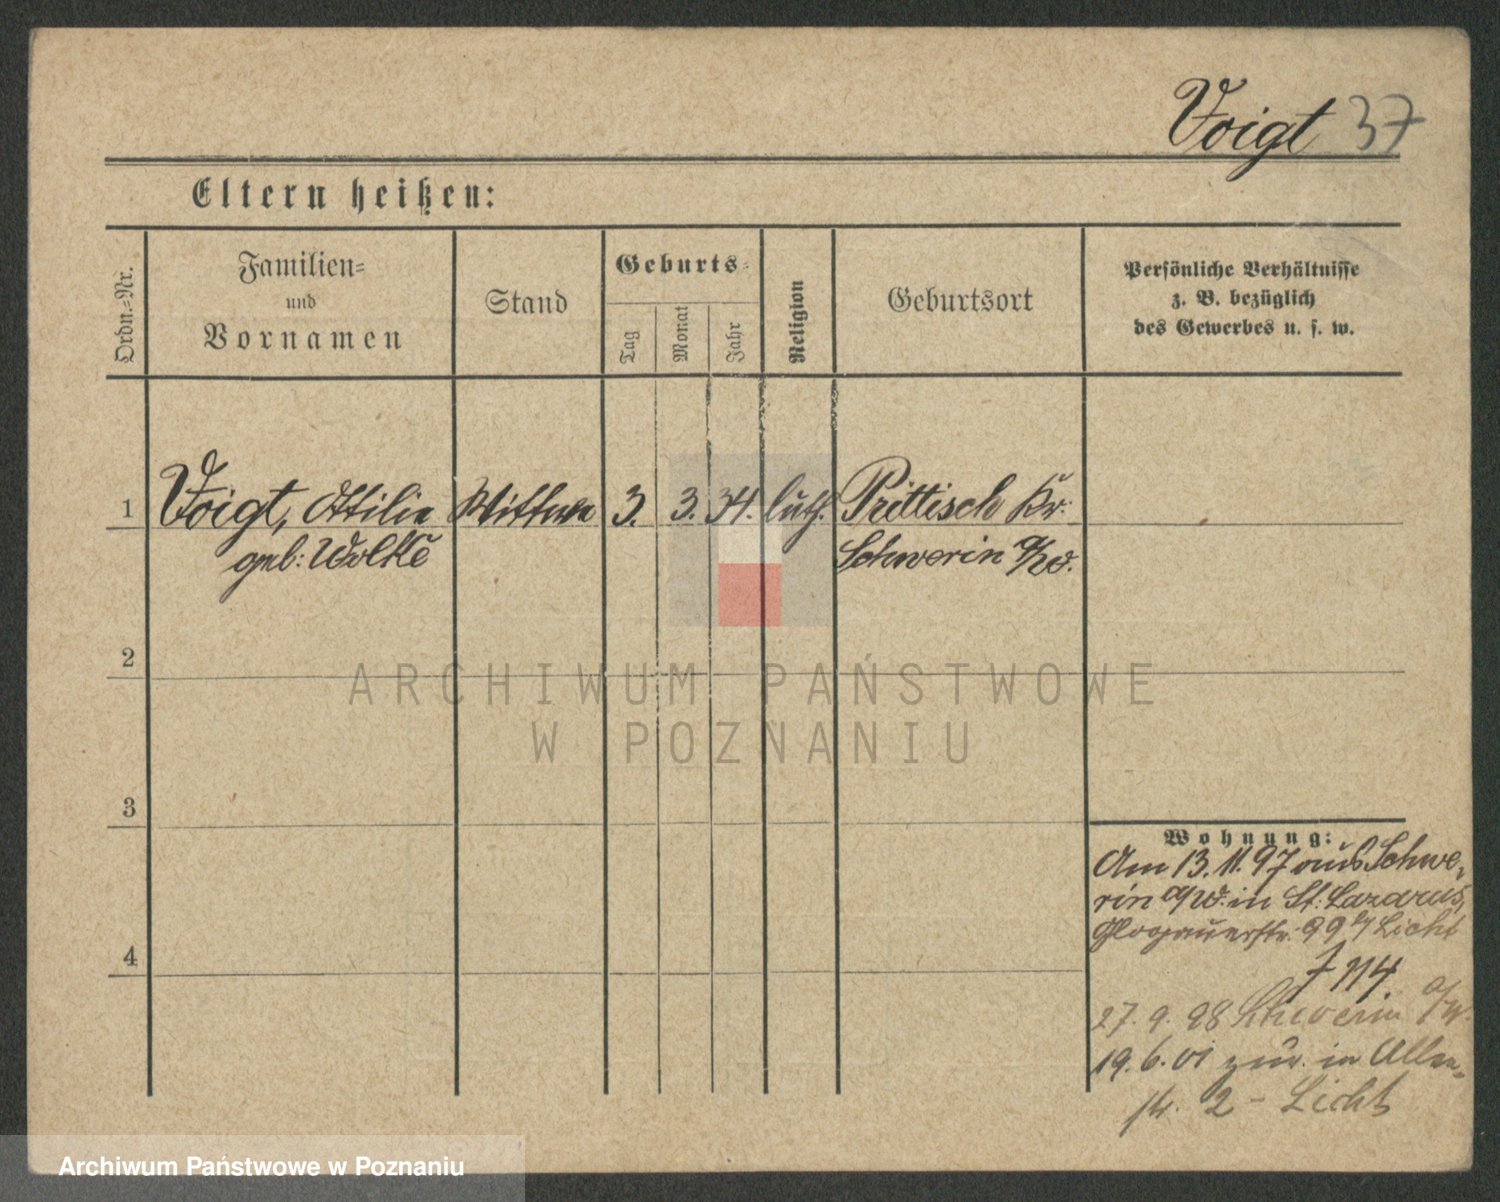 Voigt 37
Eltern heißen:
Ordn.=Nr.
Familien=
und
Vornamen
Stand
Geburts=
Tag
Monat
Jahr
Religion
Geburtsort
Persönliche Verhältnisse
z. B. bezüglich
des Gewerbes u. s. w.
1 Voigt, Ottilie Wittwe 3. 3. 34. luth. Prittisch Kr.
geb: Wolke Schwerin a/W.
2
3
4
Wohnung:
Am 13.11.97 aus Schwe-
rin a/W. in St. Lazarus,
Glogauerstr. 99 b/ Licht
114
27. 9. 98 Schwerin a/W.
19. 6. 01 zur. in
2 - Licht
ARCHIWUM PAŃSTWOWE
W POZNANIU
Archiwum Państwowe w Poznaniu